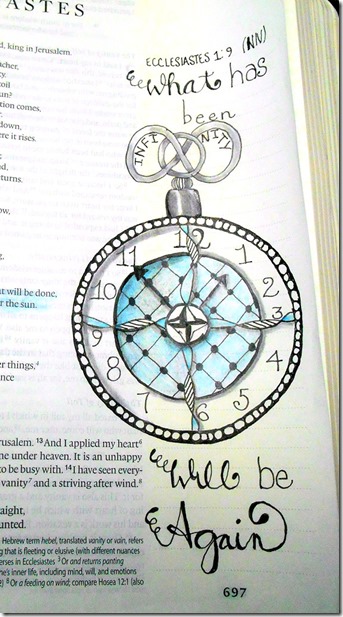 ASTES
d, king in Jerusalem.
acher,
y.
toil
un?
tion comes,
down,
ere it rises.
nd,
turns.
ow,
g.
at will be done,
r the sun.
er things,⁴
nce
rusalem. ¹³And I applied my heart⁶
me under heaven. It is an unhappy
to be busy with. ¹⁴I have seen every-
vanity⁷ and a striving after wind.⁸
aight,
unted.
Hebrew term hebel, translated vanity or vain, refers
ng that is fleeting or elusive (with different nuances
erses in Ecclesiastes ³Or and returns panting
ne's inner life, including mind, will, and emotions
e) ⁸Or a feeding on wind; compare Hosea 12:1 (also
ECCLESIASTES 1:9 (NN)
what has
been
INFINITY
12
11 1
10 2
9 3
8 4
7 5
6
will be
Again
697